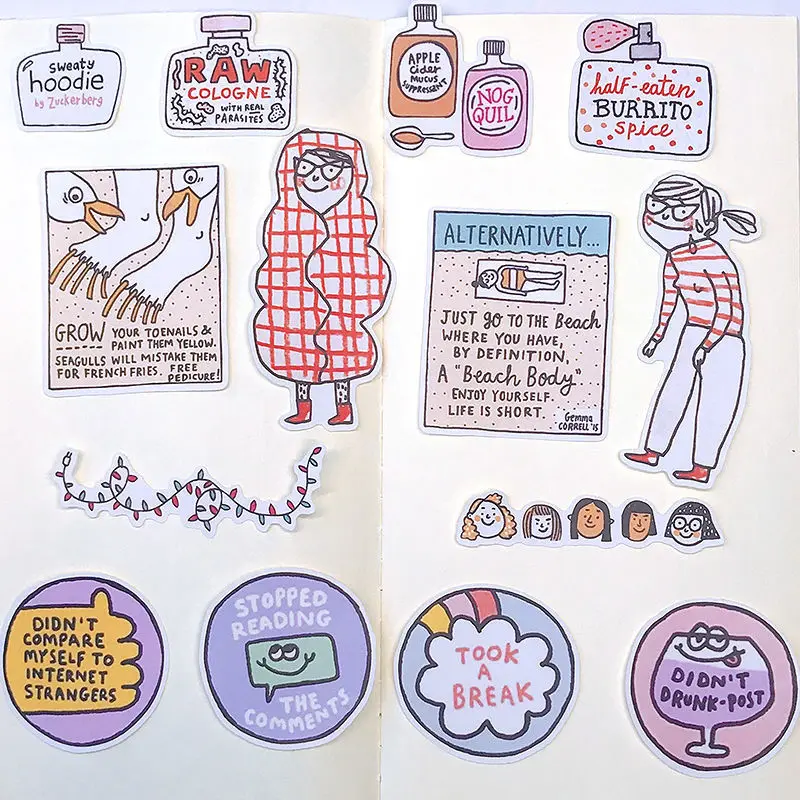 sweaty
hoodie
by Zuckerberg
RAW
COLOGNE
WITH REAL
PARASITES
APPLE
Cider
MUCUS
SUPPRESSANT
NOG
QUIL
half-eaten
BURRITO
spice
GROW YOUR TOENAILS &
PAINT THEM YELLOW.
SEAGULLS WILL MISTAKE THEM
FOR FRENCH FRIES. FREE
PEDICURE!
ALTERNATIVELY...
JUST go TO THE Beach
WHERE YOU HAVE,
BY DEFINITION,
A "Beach Body"
ENJOY YOURSELF.
LIFE IS SHORT.
Gemma
CORRELL '15
DIDN'T
COMPARE
MYSELF TO
INTERNET
STRANGERS
STOPPED
READING
THE
COMMENTS
TOOK
A
BREAK
DIDN'T
DRUNK-POST